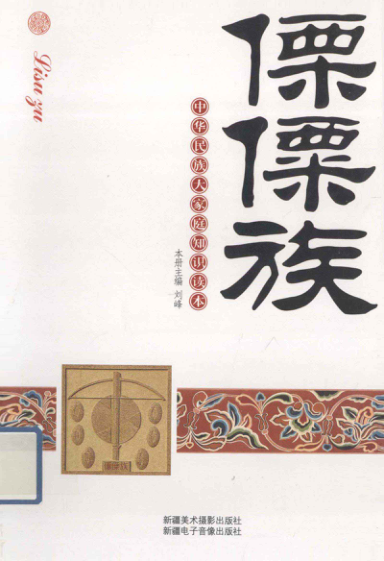 傈僳族
Lisu zu
中华民族大家庭知识读本
本册主编 刘峰
新疆美术摄影出版社
新疆电子音像出版社